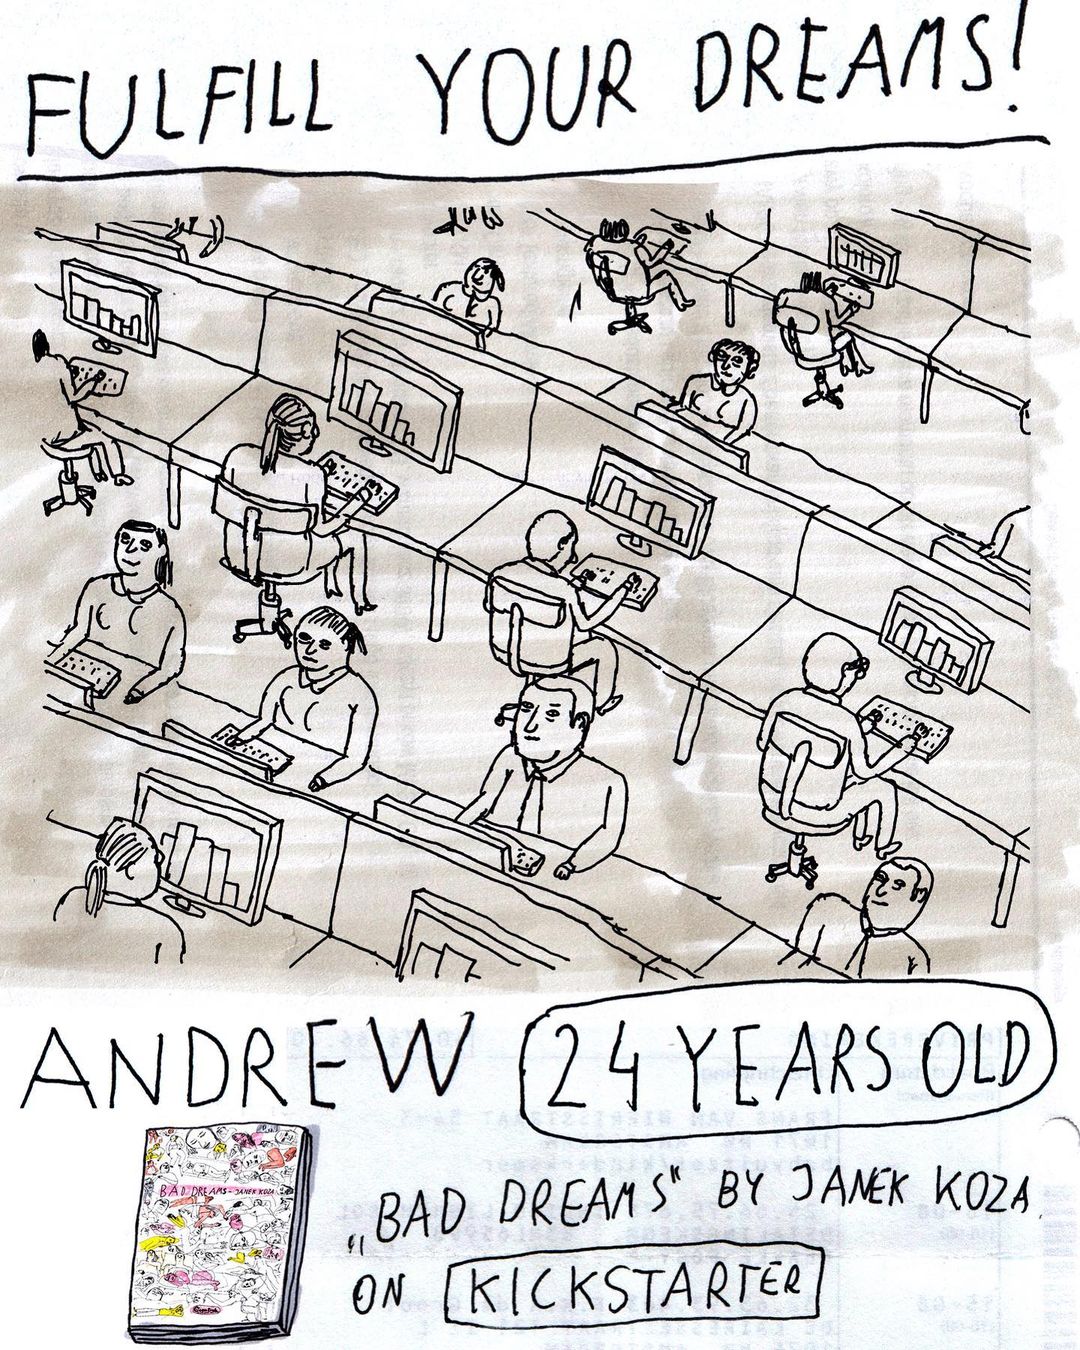 FULFILL YOUR DREAMS!
ANDREW 24 YEARS OLD
BAD DREAMS - JANEK KOZA
„BAD DREAMS" BY JANEK KOZA.
ON KICKSTARTER